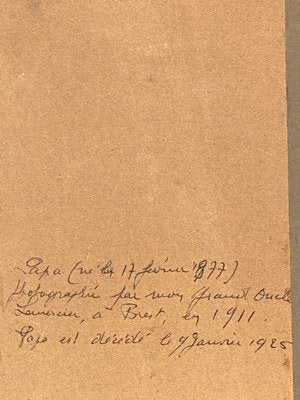 Papa (né le 17 février 1877)
photographié par mon grand Oncle
Lemercier, à Brest, en 1911.
Papa est décédé le 9 Janvier 1925